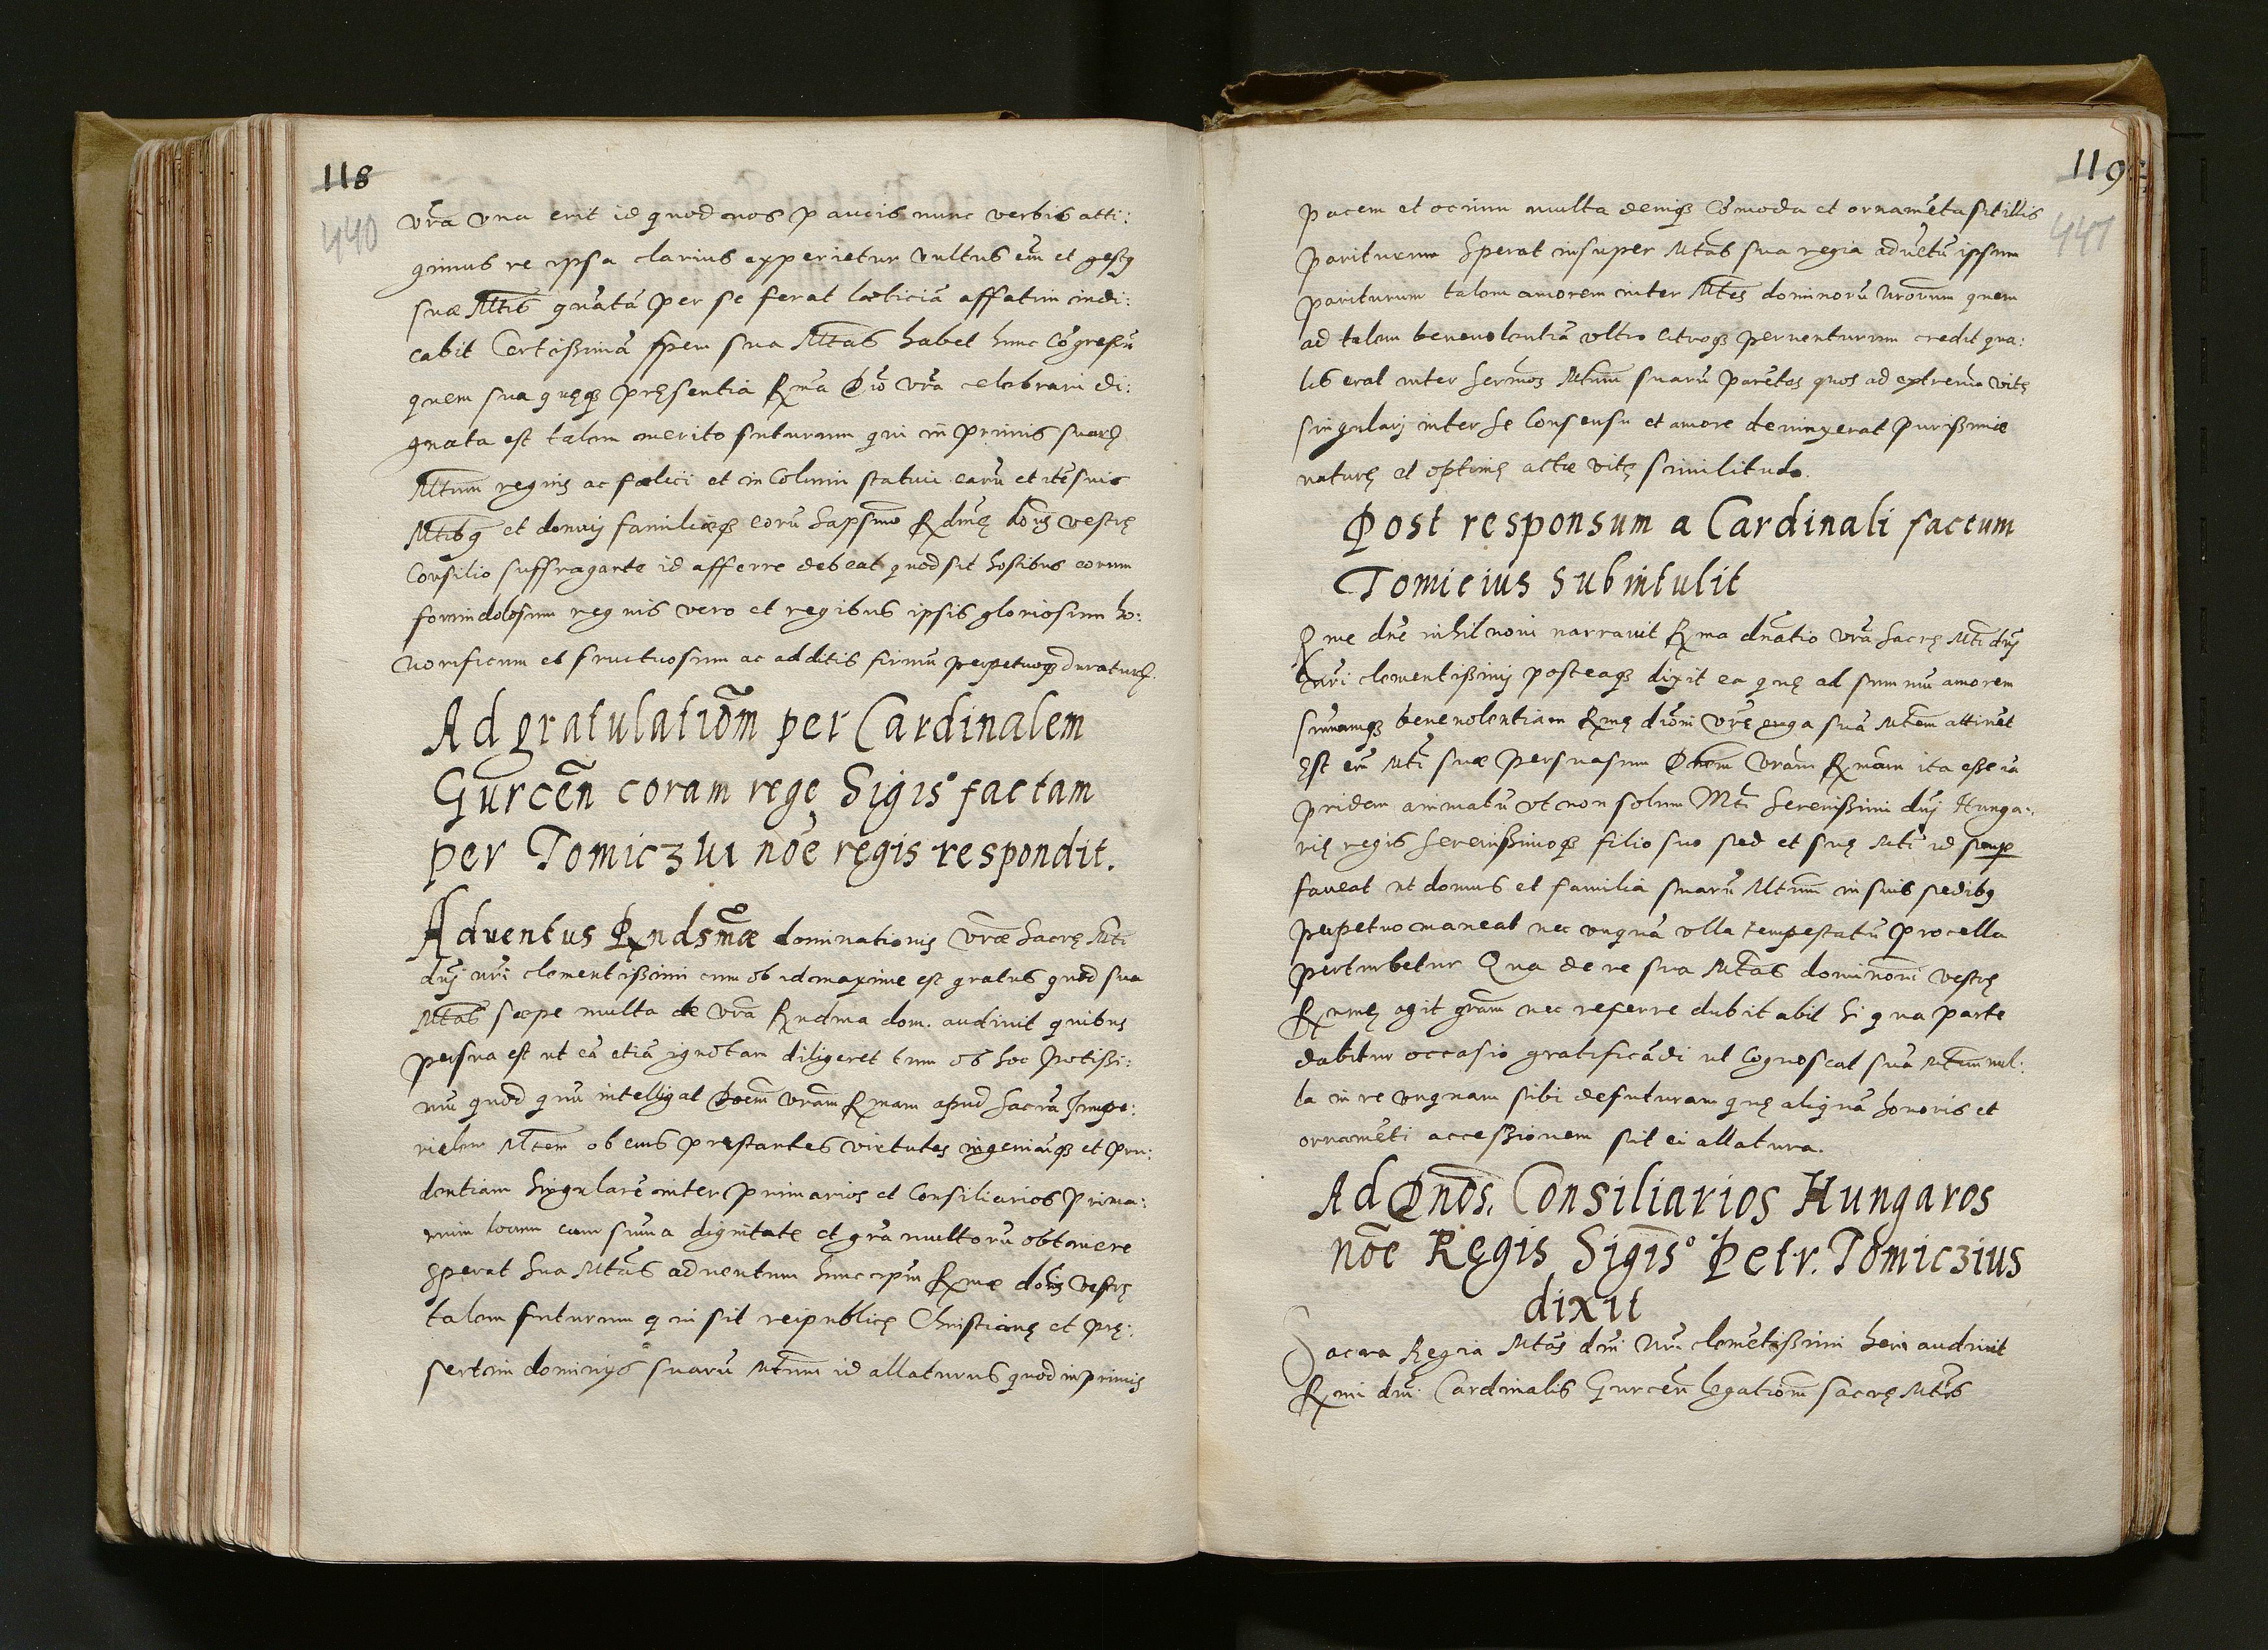 118
440
vr̃a vna erit id quod nos paucis nunc verbis atti:
gimus re ipsa clarius experietur vultus em̃ et gestus
suæ Mtis quãtã per se ferat lœticiã affatim indi:
cabit Certißimã spem sua Mtas habet hunc Cõgressũ
quem sua quęq; pręsentia Rma Dio vr̃a celebrari di:
gnata est talem merito futurum qui in primis suarũ
Mtum regnis ac fœlici et in Columi statui earũ et itẽ suis
Mtibus et domui familięq; eorũ sapsmo Rdmę dõnis vestrę
Consilio suffragante id afferre debeat quod sit hostibus eorum
formidolosum regnis vero et regibus ipsis gloriosum ho:
norificum et fructuosum ac additis firmũ perpetuoq; duraturũ.
Ad gratulatiõm per Cardinalem
Gurceñ coram rege Sigis° factam
per Tomiczui nõe regis respondit.
Aduentus Rxndsmæ dominationis Vræ Sacrę Mti
dnj nr̃i clementißimi cum ob id maxime est gratus quod sua
Mtas sæpe multa de vr̃a Rndma dom. audiuit quibus
persua est ut eã etiã ignotam diligeret tum ob hoc potißi:
mũ quod quũ intelligat Doem vram Rmam apud Sacrã Impe:
rialem Mtem ob eius prestantes virtutes ingeniũq; et pru:
dentiam Singularẽ inter primarios et Consiliarios prima:
rium locum cum suma dignitate et gr̃a multorũ obtinere
Sperat Sua Mtas aduentum hunc ipm̃ Rmæ dõnis vestrę
talem futurum qui sit reipublicę Christianę et prę:
sertim dominijs suarũ Mtum id allaturus quod inprimis
119
441
pacem et ocium multa deniq; Cõmoda et ornamẽta sit illis
pariturum Sperat insuper Mtas sua regia aduẽtũ ipsum
pariturum talem amorem inter Mtes dominorũ nrorum quem
ad talem beneuolentiã vltro citroq; peruenturum credit qua:
lis erat inter Sermos Mtum suarũ parẽtes quos ad extrema vitę
singularj inter se Consensu et amore deuinxerat purißimæ
naturę et optimę actæ vitę similitudo.
Post responsum a Cardinali factum
Tomicius Subintulit
Rme dñe nihil noui narrauit Rma dnatio vr̃a Sacrę Mti dnj
nr̃i clementißimj posteaq; dixit ea quę ad summũ amorem
sumamq; beneuolentiam Rmę dioni vr̃ę erga suã Mtem attinẽt
Est em̃ Mti suæ persuasum Dnem Vram Rmam ita esse iã
pridem animatũ vt non solum Mti Serenißimi dnj Hunga:
rię regis Serenißimoq; filio suo sed et suę Mti id semp
faueat ut domus et familia suarũ Mtum in suis sedibus
perpetuo maneat nec vnquã vlla tempestatũ procella
perturbetur Qua de re sua Mtas dominõni vestrę
Rmę agit gram nec referre dubitabit Si qua parte
dabitur occasio gratificãdi ut Cognoscat suã Mtem nul:
la in re vnquam sibi defuturam quę aliquã honoris et
ornamẽti accessionem sit ei allatura.
Ad Dnõs. Consiliarios Hungaros
nõe Regis Sigis° Petr. Tomiczius
dixit
Sacra Regia Mtas dnĩ nr̃i clemẽtißimi heri audiuit
Rmi dnĩ Cardinalis Gurceñ legatiõm sacrę Mtis